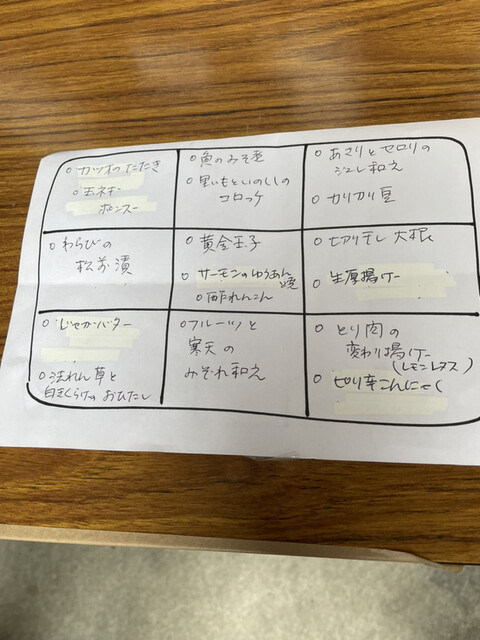 ○ カツオのたたき
○ 玉ネギ
ポンズー
○ 魚のみそ煮
○ 里いもといのししの
コロッケ
○ あさりとセロリの
ジュレ和え
○ カリカリ豆
○ わらびの
松前漬
○ 黄金玉子
○ サーモンのゆうあん
焼
○ 酢れんこん
○ 切り干し大根
○ 生厚揚げ
○ じゃがバター
○ 法れん草と
白きくらげのおひたし
○ フルーツと
寒天の
みぞれ和え
○ とり肉の
変わり揚げ
(レモンレタス)
○ ピリ辛こんにゃく